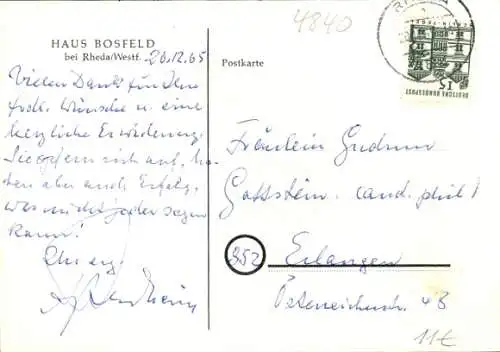 4840
HAUS BOSFELD
bei Rheda/Westf. 20.12.65
Postkarte
15
DEUTSCHE BUNDESPOST
Vielen Dank für Ihre
frdl. Wünsche u. eine
herzliche Erwiderung.
Sie opfern sich auf, ha-
ben aber auch Erfolg,
was nicht jeder sagen
kann!
Ihr erg.
Fräulein Gudrun
Gottstein (cand. phil)
852 Erlangen
Österreicherstr. 48
11€